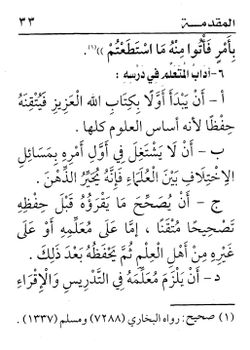 المقدمة ٣٣
بِأَمْرٍ فَأْتُوا مِنْهُ مَا اسْتَطَعْتُمْ »(١).
٦- آداب المتعلم في درسه :
أ - أَنْ يَبْدَأَ أَوَّلًا بِكِتَابِ الله الْعَزِيزِ فَيُتْقِنَهُ
حِفْظًا لأنه أساس العلوم كلها .
ب - أَنْ لَا يَشْتَغِلَ فِي أَوَّلِ أَمْرِهِ بِمَسَائِلِ
الِاخْتِلَافِ بَيْنَ الْعُلَمَاءِ فَإِنَّهُ يُحَيِّرُ الذِّهْنَ .
ج - أَنْ يُصَحِّحَ مَا يَقْرَؤُهُ قَبْلَ حِفْظِهِ
تَصْحِيحًا مُتْقَنًا ، إِمَّا عَلَى مُعَلِّمِهِ أَوْ عَلَى
غَيْرِهِ مِنْ أَهْلِ الْعِلْمِ ثُمَّ يَحْفَظُهُ بَعْدَ ذَلِكَ .
د - أَنْ يَلْزَمَ مُعَلِّمَهُ فِي التَّدْرِيسِ وَالْإِقْرَاءِ
(١) صحيح : رواه البخاري (٧٢٨٨) ومسلم (١٣٣٧) .